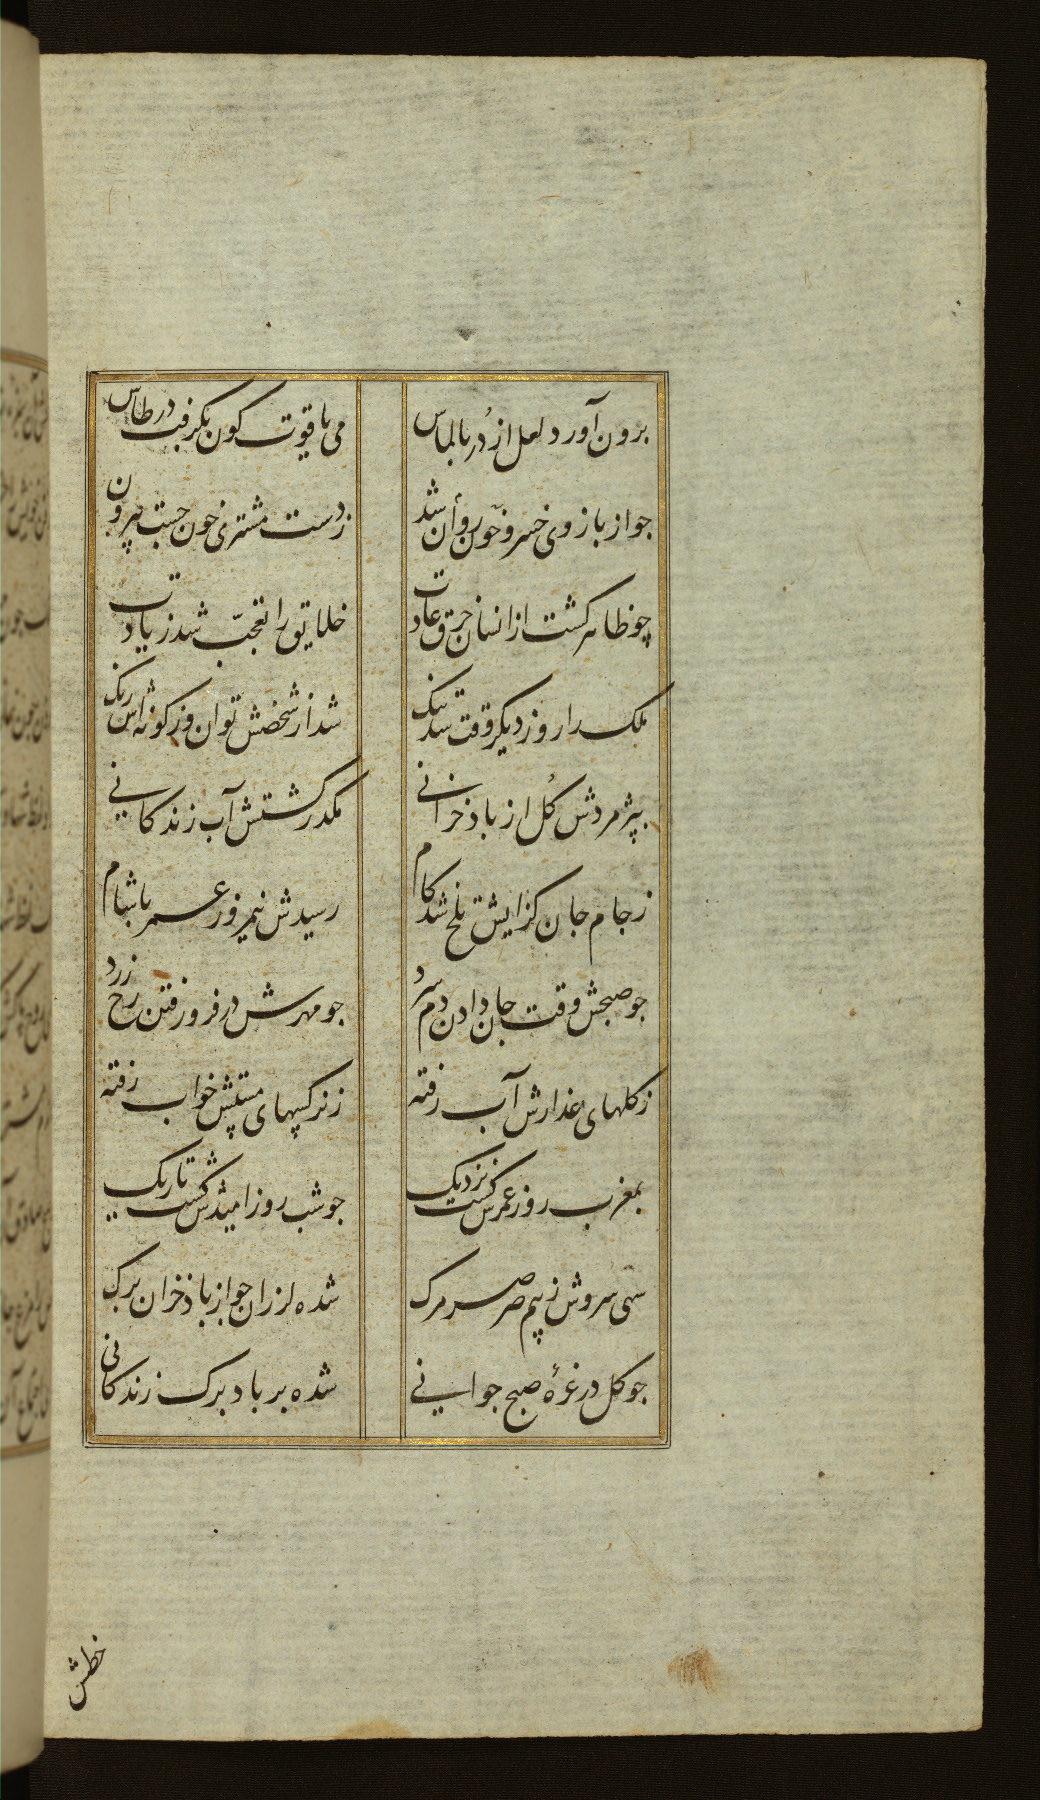 برون آورد لعل از دُر بالماس
می یاقوت کون بکرفت در طاس
جو از بازوی خسرو خون روان شد
زدست مشتری خون جست بیرون
چو ظاهر کشت از انسان خرق عادت
خلایق را تعجّب شد زیادت
ملک را روز دیکر وقت شد تنک
شد از شخصش توان وز کونه اش رنک
بپژمردش کُل از باد خزانی
مکدر کشتش آب زندکانی
ز جام جان کزایش تلخ شد کام
رسیدش نیمروز عمر با شام
جو صبحش وقت جان دادن دم سرد
جو مهرش در فرو رفتن رخ زرد
زکلهای عذارش آب رفته
ز نرکسهای مستش خواب رفته
بمغرب روز عمرش کشت نزدیک
جو شب روز امیدش کشت تاریک
سهی سروش ز بیم صرصر مرک
شده لرزان جو از باد خزان برک
جو کل در غرهٔ صبح جوانی
شده بر باد برک زندکانی
خطش